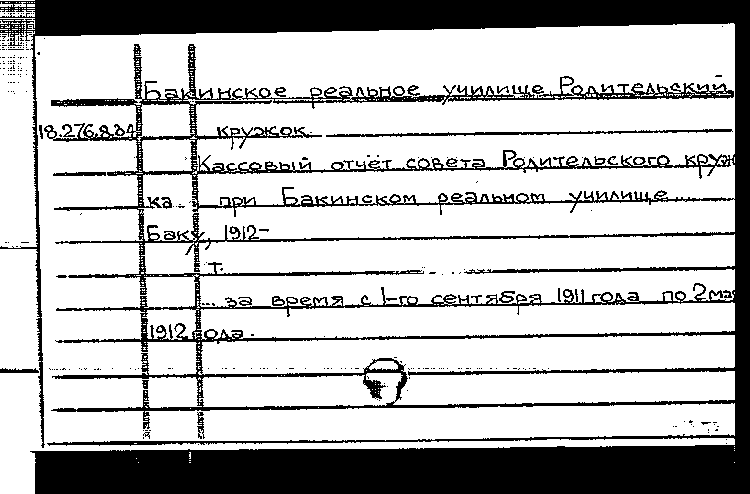 Бакинское реальное училище. Родительский
18.276.8.84 кружок.
Кассовый отчёт совета Родительского круж
ка при Бакинском реальном училище
Баку, 1912-
т.
... за время с 1-го сентября 1911 года по 2 мая
1912 года.